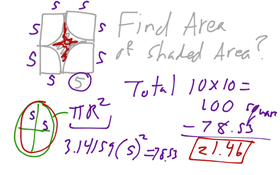 S S
S S
S S
5
Find Area
of Shaded Area?
Total 10x10=
100 square
- 78.53
21.46
S S
S
πR²
3.14159(5)²=78.53